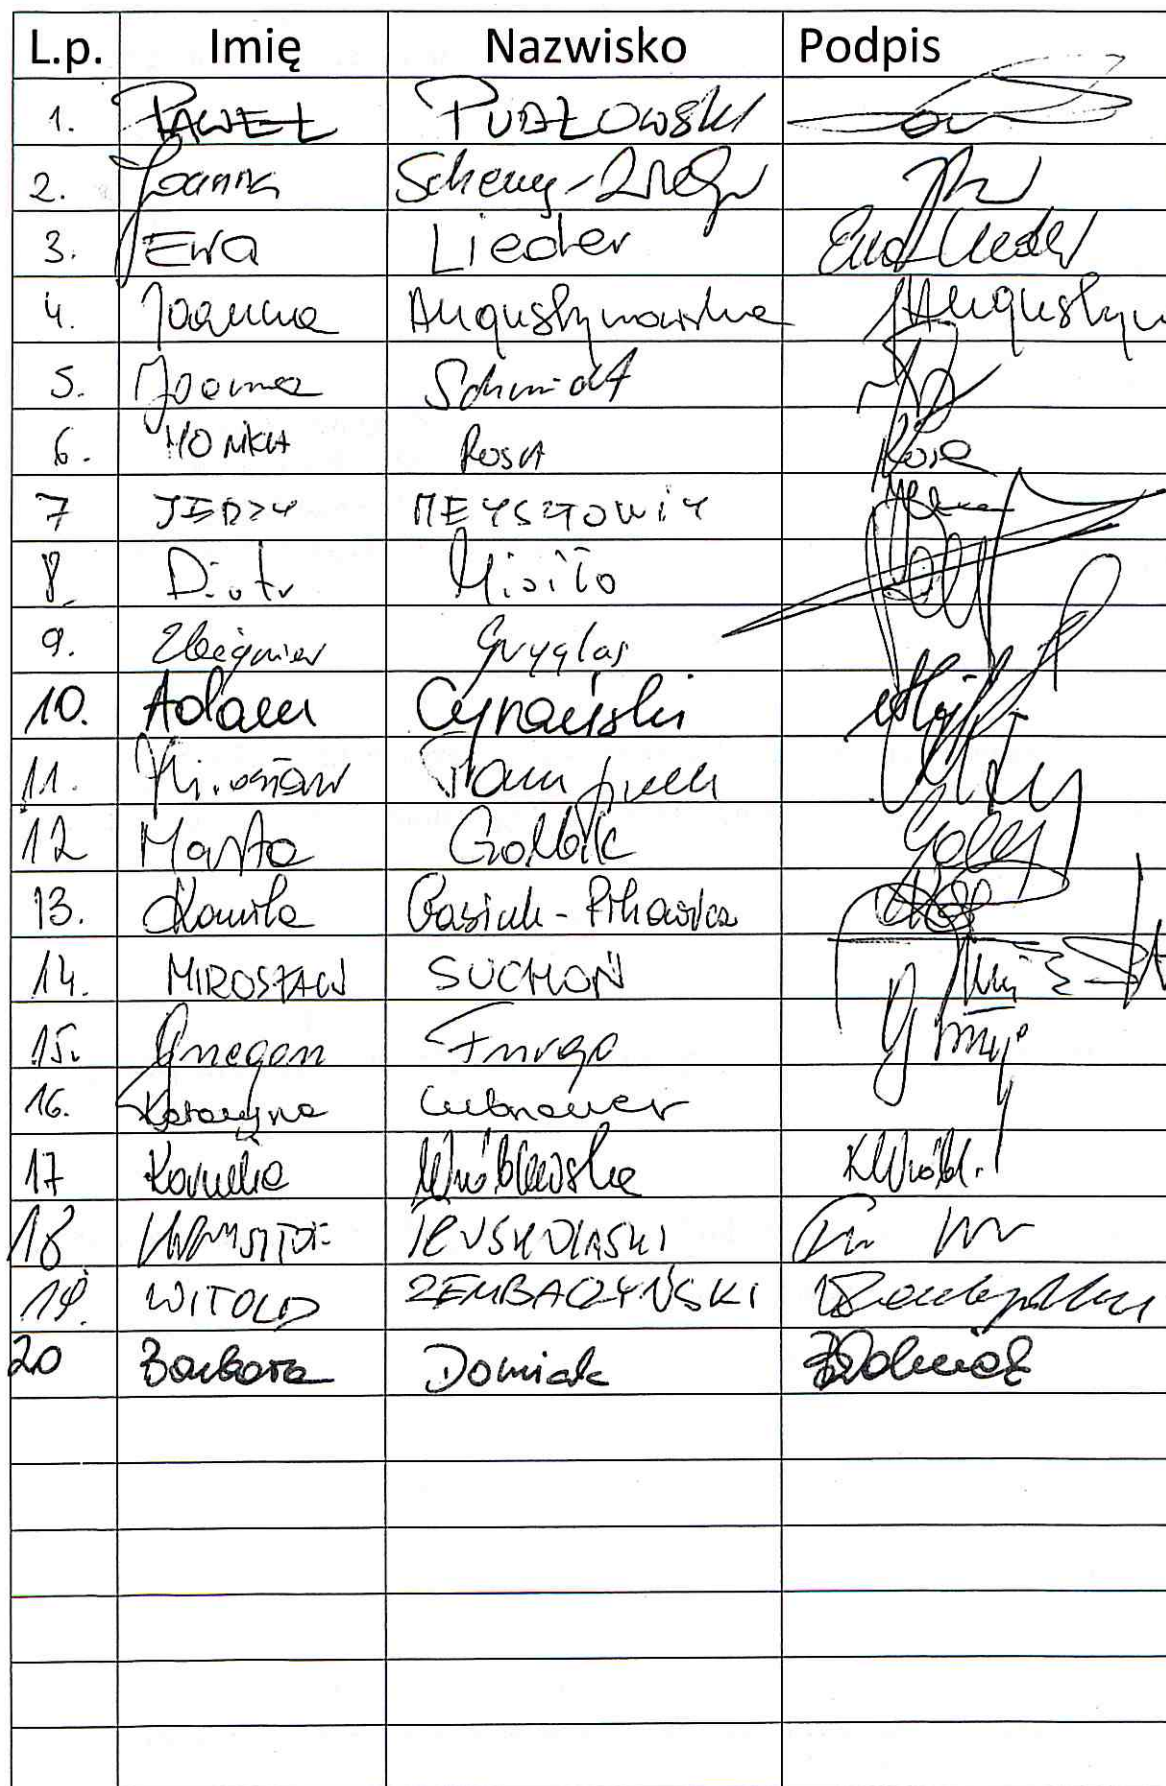 L.p. Imię Nazwisko Podpis
1. PAWEŁ PUDŁOWSKI
2. Joanna Scheuring-
3. Ewa Lieder Ewa Lieder
4. Joanna Augustynowska JAugustyn
5. Joanna Schmidt
6. MONIKA ROSA Rosa
7 JERZY MEYSZTOWICZ
8. Piotr Misiło
9. Zbigniew Gryglas
10. Adam Cyrański
11. Mirosław Pampuch
12 Marta Golbik
13. Kamila Gasiuk-Pihowicz
14. MIROSŁAW SUCHOŃ
15. Grzegorz Furgo
16. Katarzyna Lubnauer
17 Kornelia Wróblewska KWróbl.
18
19. WITOLD ZEMBACZYŃSKI
20 Barbara Dolniak BDolniak